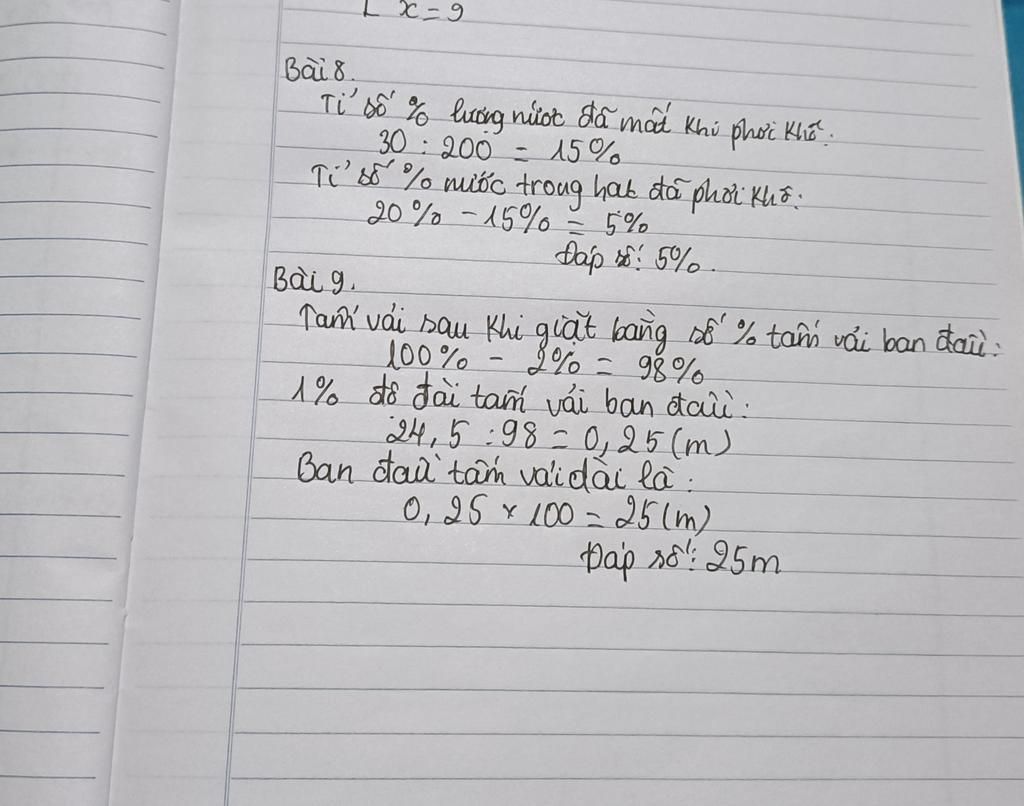 x = 9
Bài 8.
Tỉ số % lượng nước đã mất khi phơi khô:
30 : 200 = 15%
Tỉ số % nước trong hạt đã phơi khô:
20% - 15% = 5%
Đáp số: 5%.
Bài 9.
Tấm vải sau khi giặt bằng số % tấm vải ban đầu:
100% - 2% = 98%
1% độ dài tấm vải ban đầu:
24,5 : 98 = 0,25 (m)
Ban đầu tấm vải dài là:
0,25 x 100 = 25 (m)
Đáp số: 25m